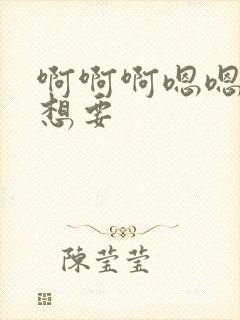 啊啊啊嗯嗯
想要
陳莹莹